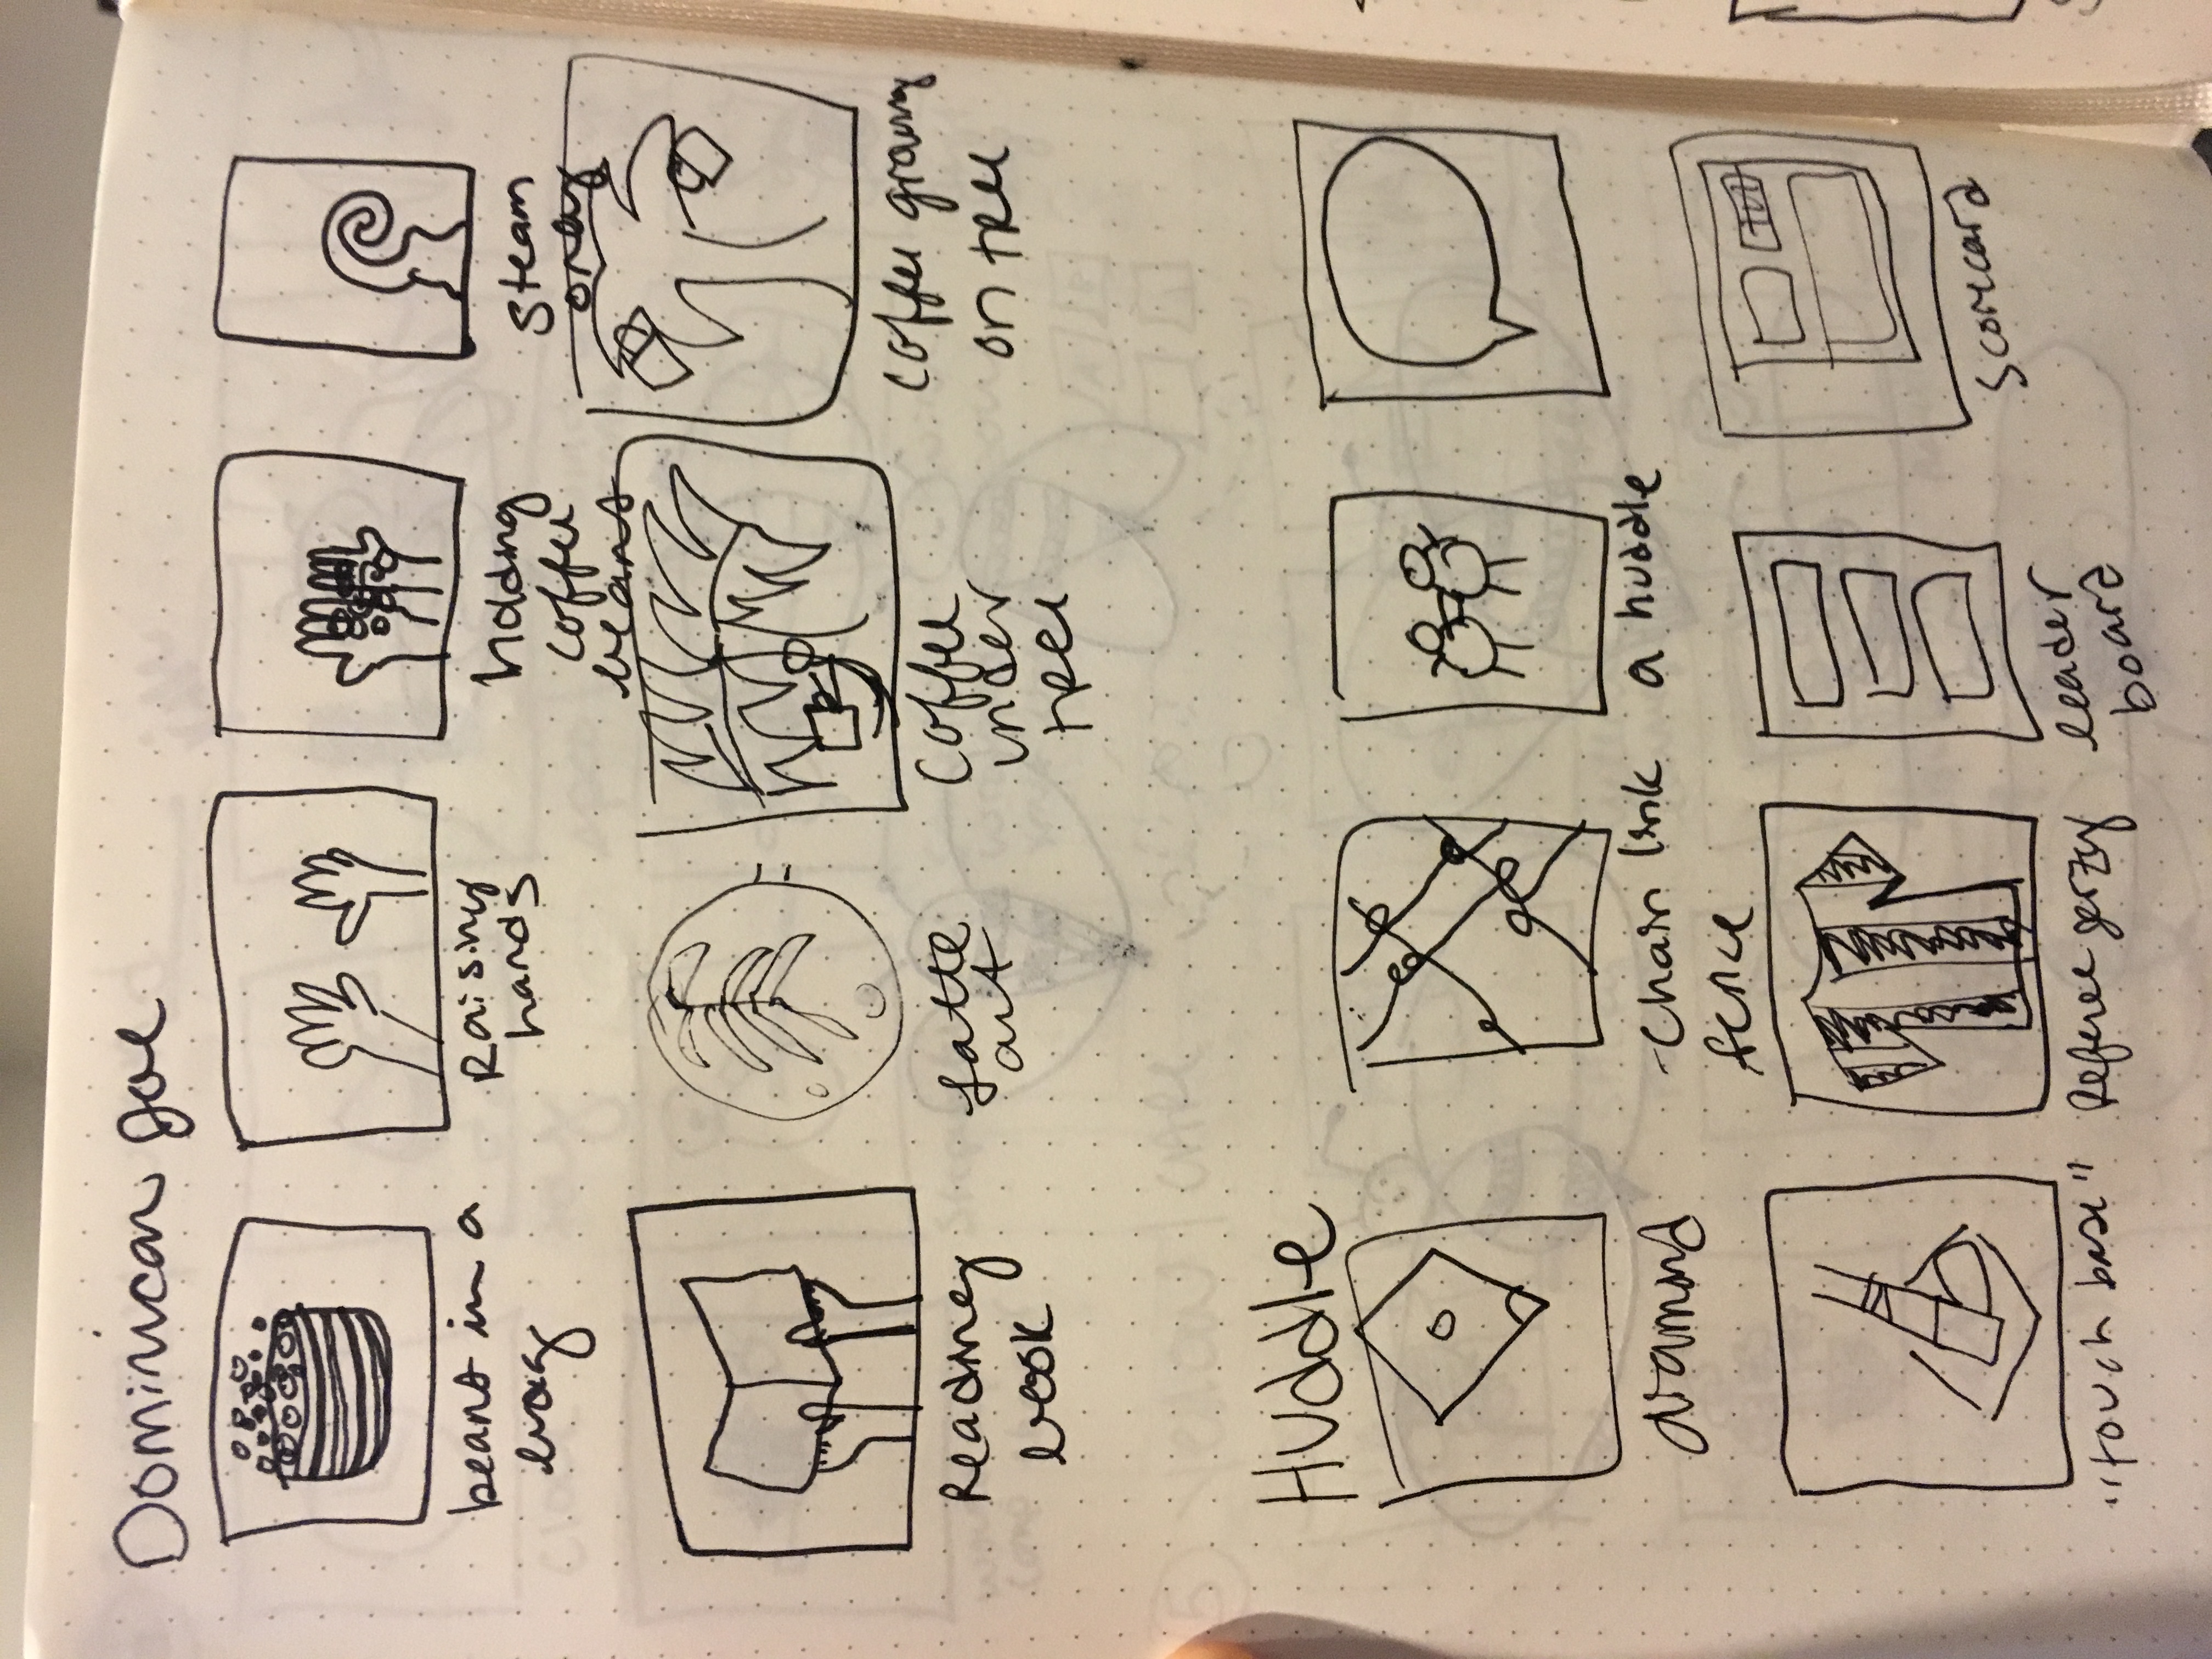 Dominican Joe
beans in a
bag
Raising
hands
holding
coffee
beans
Steam
only
Reading
book
Latte
art
Coffee
under
tree
Coffee growing
on tree
Huddle
diamond
Chain link
fence
a huddle
"touch base"
Referee jerzey
leader
board
Scorecard